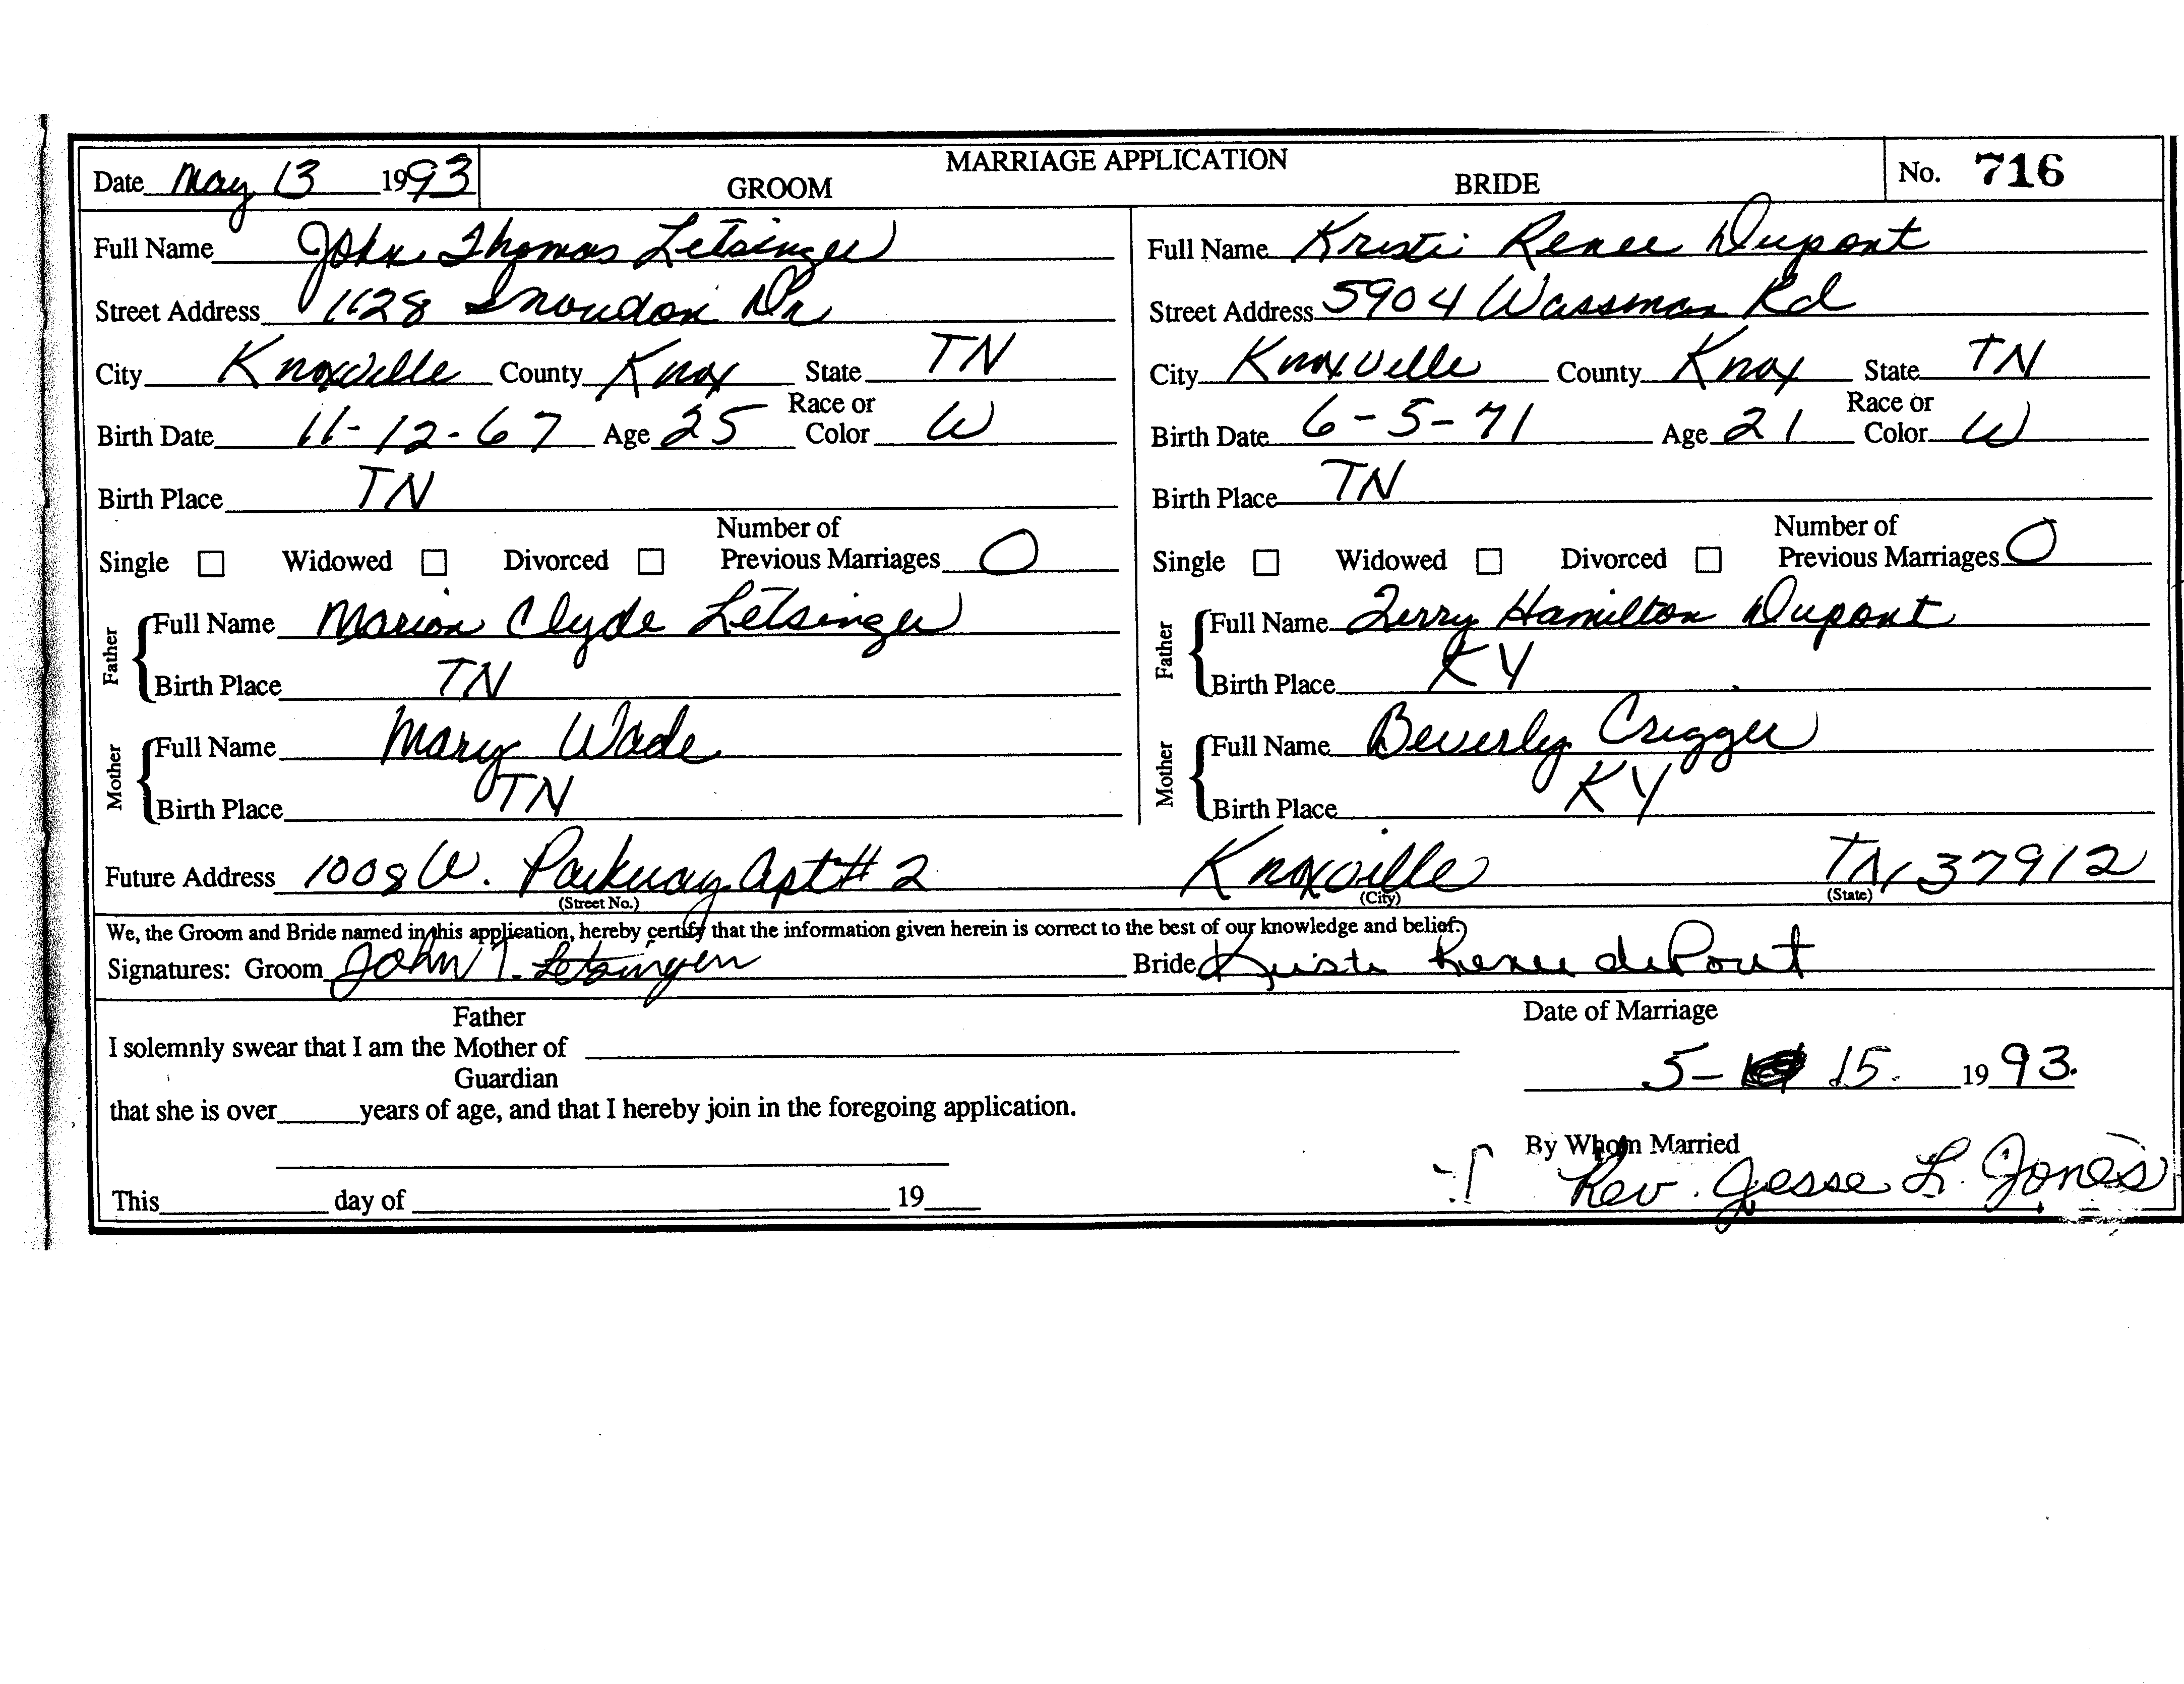 MARRIAGE APPLICATION
Date May 13 1993 GROOM BRIDE No. 716
Full Name John Thomas Letsinger Full Name Kristi Renee Dupont
Street Address 1128 Snoudon Dr Street Address 5904 Wassman Rd
City Knoxville County Knox State TN City Knoxville County Knox State TN
Birth Date 11-12-67 Age 25 Race or Color W Birth Date 6-5-71 Age 21 Race or Color W
Birth Place TN Birth Place TN
Single ☐ Widowed ☐ Divorced ☐ Number of Previous Marriages 0 Single ☐ Widowed ☐ Divorced ☐ Number of Previous Marriages 0
Father Full Name Marion Clyde Letsinger Father Full Name Terry Hamilton Dupont
Birth Place TN Birth Place KY
Mother Full Name Mary Wade Mother Full Name Beverly Crigger
Birth Place TN Birth Place KY
Future Address 1008 W. Parkway Apt # 2 Knoxville TN, 37912
(Street No.) (City) (State)
We, the Groom and Bride named in this application, hereby certify that the information given herein is correct to the best of our knowledge and belief.
Signatures: Groom John T. Letsinger Bride Kristi Renee duPont
Father Date of Marriage
I solemnly swear that I am the Mother of
Guardian 5- 15. 1993.
that she is over years of age, and that I hereby join in the foregoing application.
By Whom Married
Rev. Jesse L. Jones
This day of 19